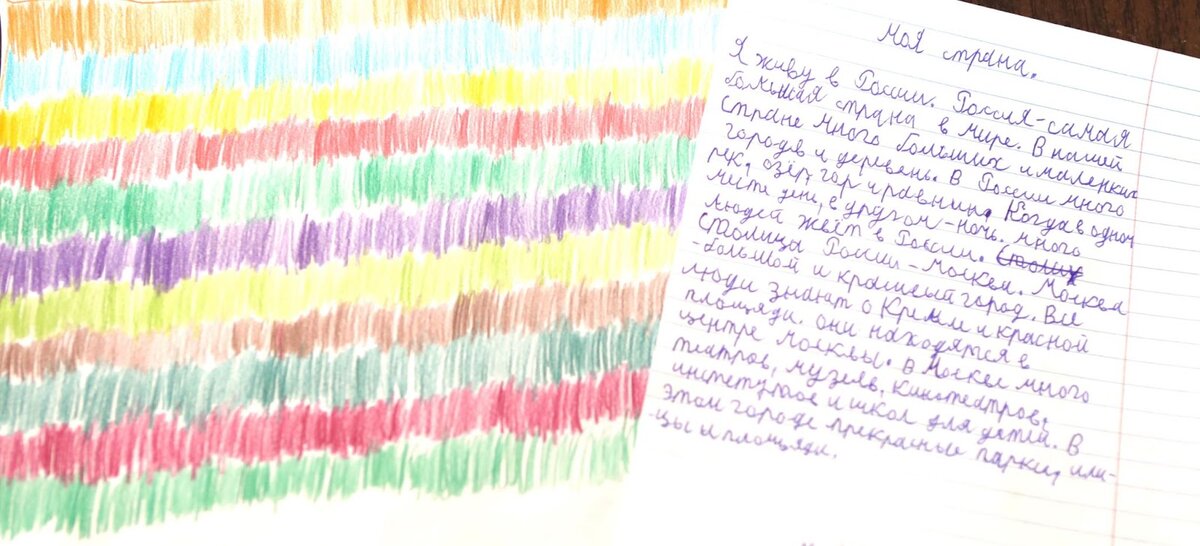 Моя страна.
Я живу в России. Россия-самая
большая страна в мире. В нашей
стране много больших и маленких
городв и деревень. В России много
рек, озёр, гор и равнин. Когда в одном
месте день, в другом-ночь. Много
людей жёт в России. Столиц
столицы России-Москва. Москва
-большой и красивый город. Все
люди знают о Кремле и Красной
площади. Они находятся в
центре Москвы. В Москве много
театров, музеев, кинотеатров,
институтов и школ для детей. В
этом городе прекрасные парки, или-
цы и площади.